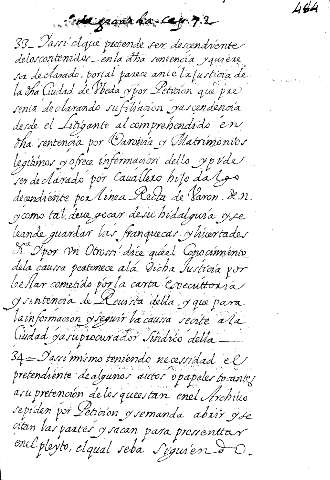 484
33 = Yassi el que pretende ser descendiente
de los contenidos en la dha sentencia y quiere
sea declarado, por tal parece ante la Justicia de
la dha Ciudad de Vbeda y por Peticion que pre
senta declarando su filiacion, y ascendencia
desde el Litigante al comprehendido en
dha sentencia por Varonia y Matrimonios
legitimos y ofrece informacion dello y pide
ser declarado por Cavallero hijo dalgo
dependiente por linea Recta de Varon. de n.
y como tal, deve gozar de su hidalguia y se
le ande guardar las franquezas y livertades
Y por Vn Otrossi dice que el Conocimiento
de la causa pertenece a la Dicha Justicia por
le estar cometido por la carta executtoria
y sentencia de Revista della y que para
la informacion y seguir la causa se cite a la
Ciudad y a su procurador Sindico della
34 = Y assi mismo teniendo necessidad el
pretendiente de algunos autos o papeles tocantes
a su pretencion de los que estan en el Archivo
se piden por Peticion y se manda abrir y se
citan las partes y sacan para pressenttar
en el pleyto, el qual se ba siguiendo